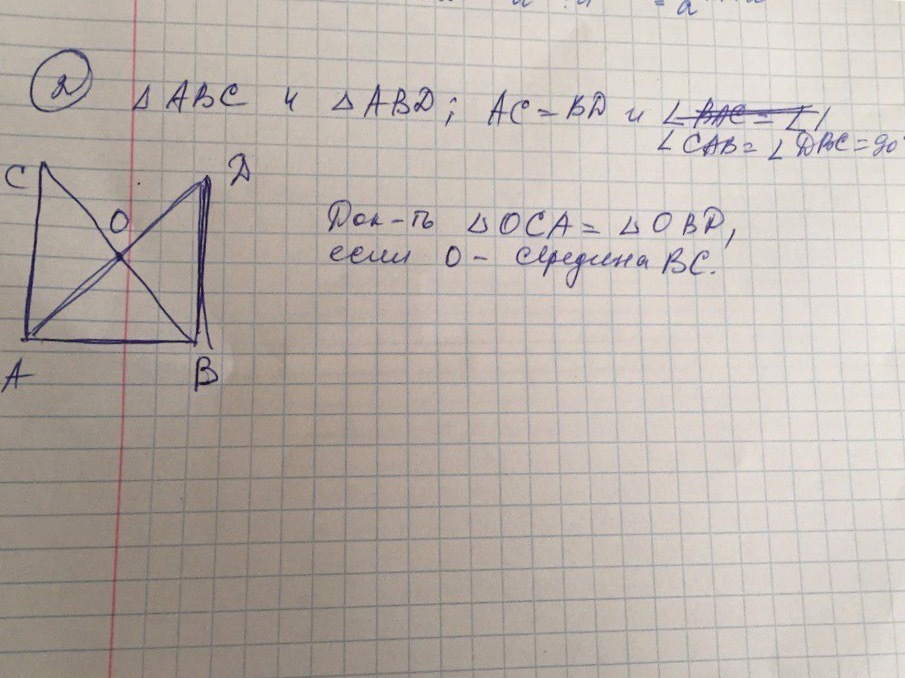 2 △ ABC и △ ABD; AC = BD и ∠ BAC = ∠ 1
∠ CAB = ∠ DBC = 90°
C D
O
Док-ть △ OCA = △ OBD,
если O - середина BC.
A B